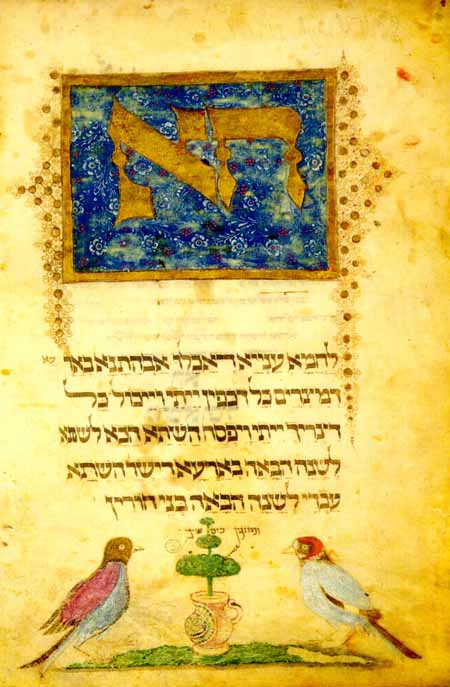 הא
לחמא עניא די אכלו אבהתנא באר עא
דמצרים כל דכפין ייתי וייכול כל
דצריך ייתי ויפסח השתא הכא
לשנה הבאה בארעא דישר השתא
עבדי לשנה הבאה בני חורין
כוס